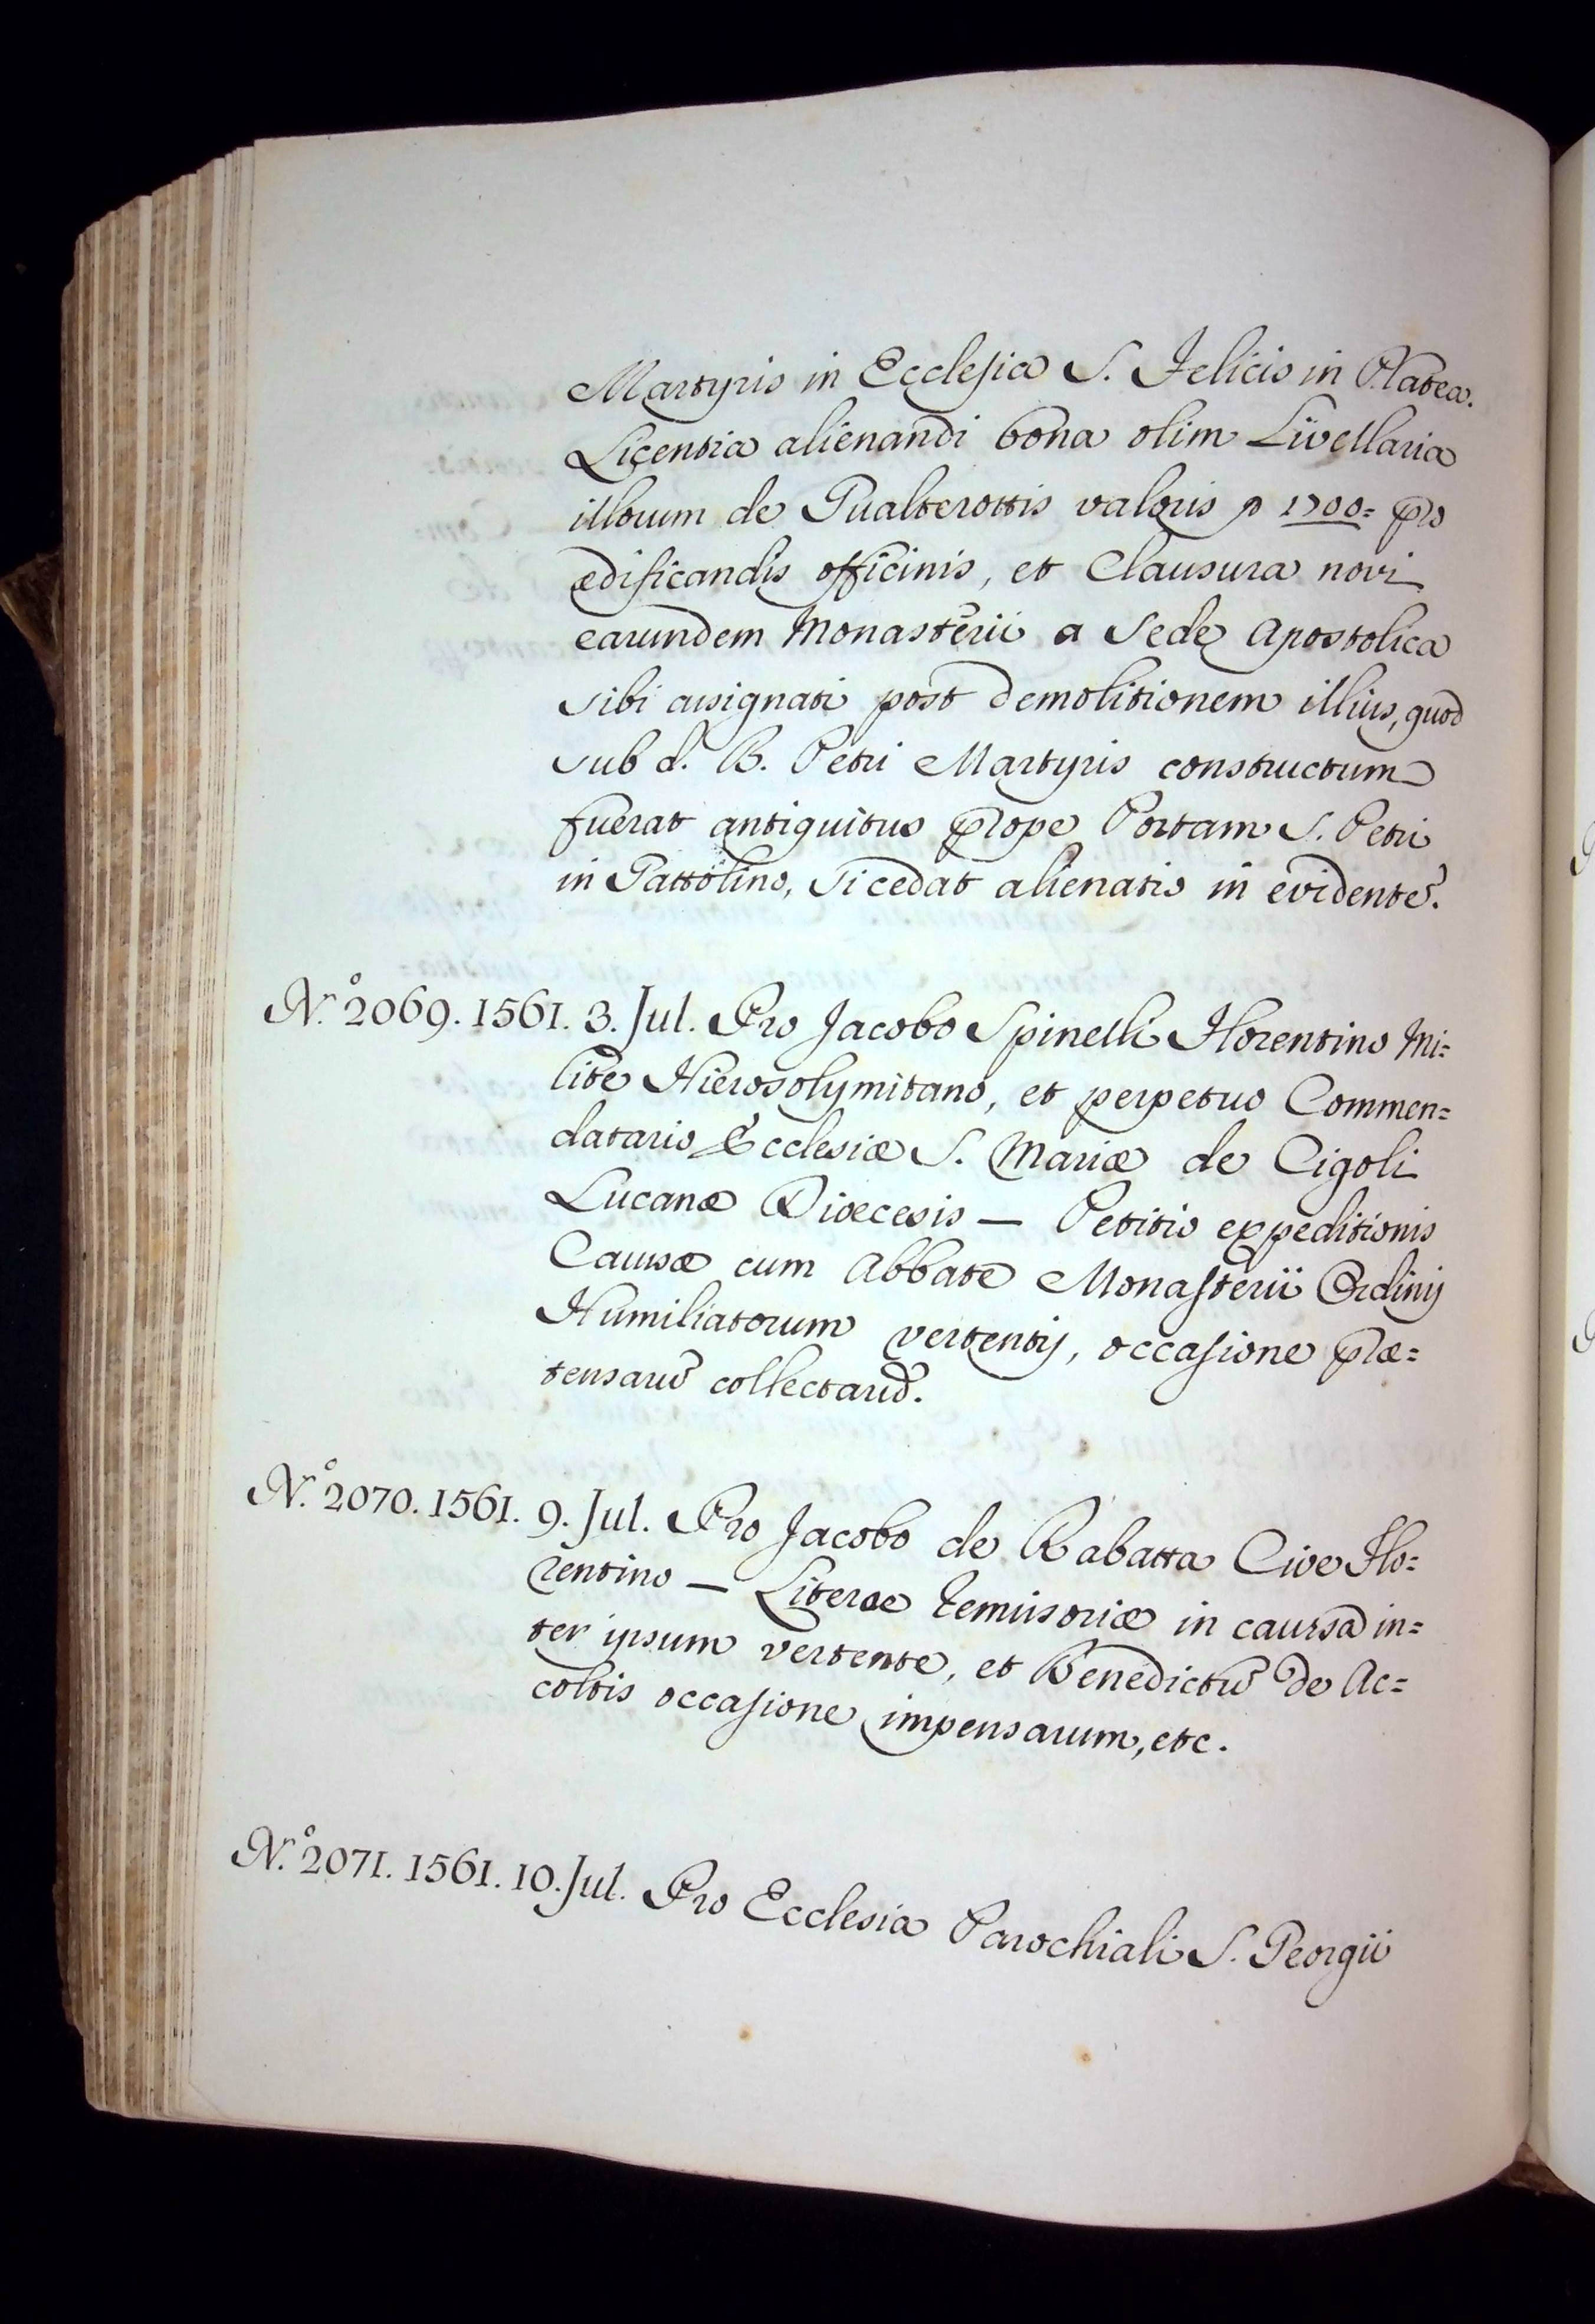 Martyris in Ecclesia S. Felicis in Platea.
Licentia alienandi bona olim Livellaria
illorum de Gualterottis valoris 1700= pro
ædificandis officinis, et Clausura novi
earundem Monasterii a Sede Apostolica
sibi assignati post demolitionem illius, quod
sub d.º B. Petri Martyris constructum
fuerat antiquitus prope Portam S. Petri
in Gattolino, si cedat alienatio in evidente.
N.º 2069. 1561. 3. Jul. Pro Jacobo Spinelli Florentino Mi=
lite Hierosolymitano, et perpetuo Commen=
datario Ecclesiæ S. Mariæ de Cigoli
Lucanæ Dioecesis — Petitio expeditionis
Causæ cum Abbate Monasterii Ordinis
Humiliatorum vertentis, occasione præ=
tensarū collectarū.
N.º 2070. 1561. 9. Jul. Pro Jacobo de Rabatta Cive Flo=
rentino — Literae Remissoriæ in caussa in=
ter ipsum vertente, et Benedictū de Ac=
coltis occasione impensarum, etc.
N.º 2071. 1561. 10. Jul. Pro Ecclesia Parochiali S. Georgii